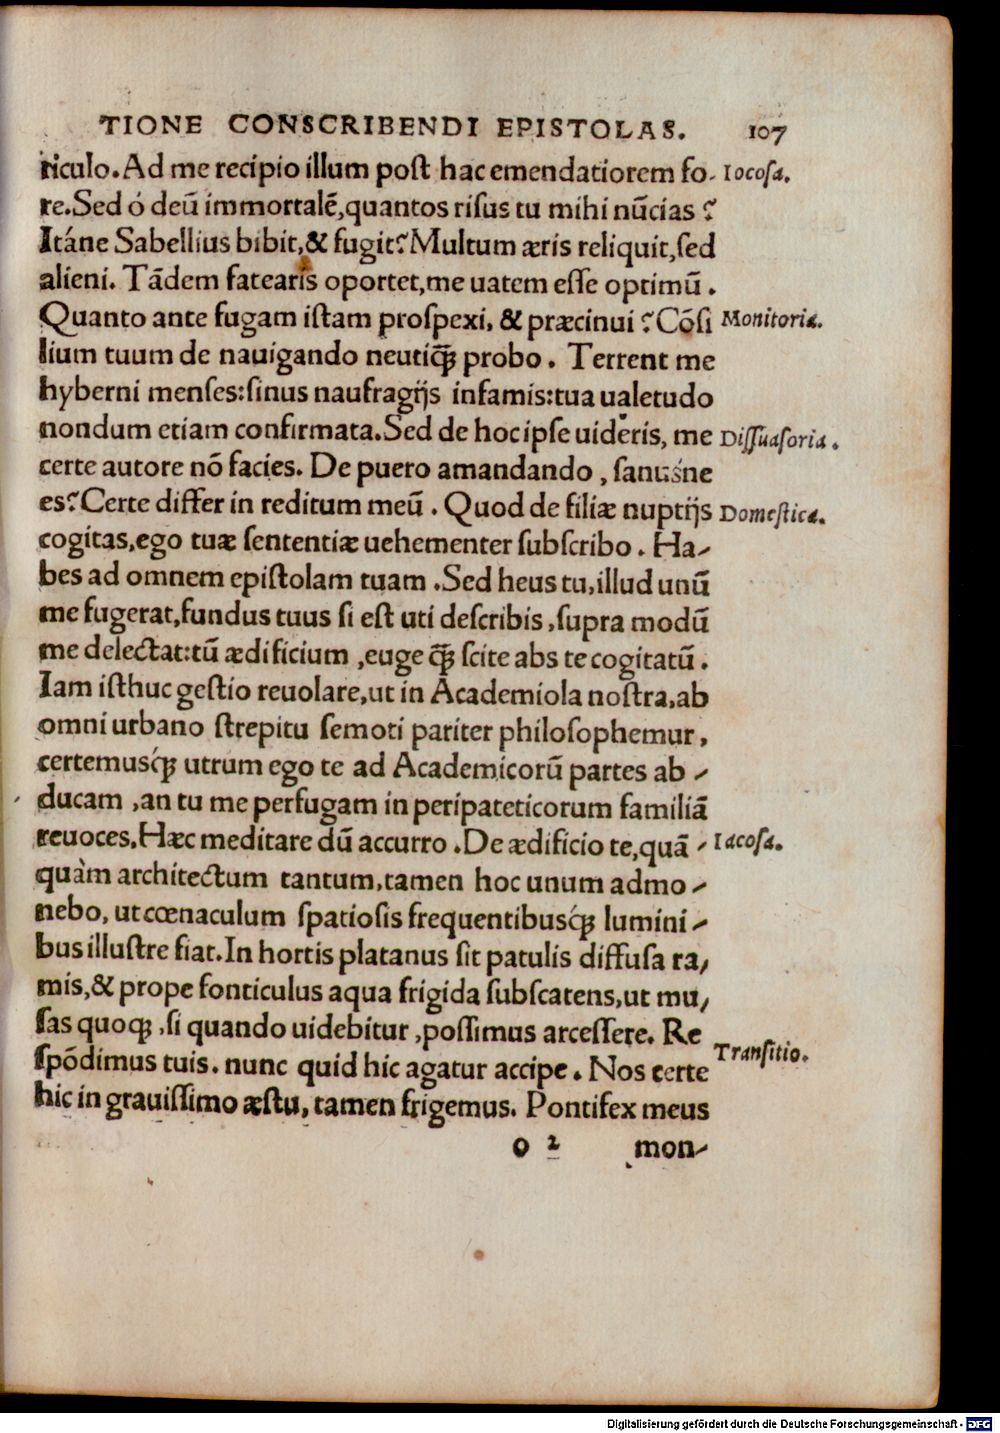 TIONE CONSCRIBENDI EPISTOLAS. 107
riculo. Ad me recipio illum poſt hac emendatiorem fo- Iocoſa.
re. Sed ó deū immortalē, quantos riſus tu mihi nūcias ?
Itáne Sabellius bibit, & fugit? Multum æris reliquit, ſed
alieni. Tādem fatearis oportet, me uatem eſſe optimū .
Quanto ante fugam iſtam proſpexi, & præcinui ? Cōſi Monitoria.
lium tuum de nauigando neutiq̃ꝫ probo . Terrent me
hyberni menſes: ſinus naufragijs infamis: tua ualetudo
nondum etiam confirmata. Sed de hoc ipſe uideris, me Diſſuaſoria .
certe autore nō facies. De puero amandando , ſanusne
es? Certe differ in reditum meū . Quod de filiæ nuptijs Domeſtica.
cogitas, ego tuæ ſententiæ uehementer ſubſcribo . Ha-
bes ad omnem epiſtolam tuam . Sed heus tu, illud unū
me fugerat, fundus tuus ſi eſt uti deſcribis , ſupra modū
me delectat: tū ædificium , euge q̃ꝫ ſcite abs te cogitatū .
Iam iſthuc geſtio reuolare, ut in Academiola noſtra, ab
omni urbano ſtrepitu ſemoti pariter philoſophemur ,
certemusq́ꝫ utrum ego te ad Academicorū partes ab -
ducam , an tu me perfugam in peripateticorum familiā
reuoces. Hæc meditare dū accurro . De ædificio te, quā - Iacoſa.
quàm architectum tantum, tamen hoc unum admo -
nebo, ut cœnaculum ſpatioſis frequentibusq́ꝫ lumini -
bus illuſtre fiat. In hortis platanus ſit patulis diffuſa ra-
mis, & prope fonticulus aqua frigida ſubſcatens, ut mu-
ſas quoqꝫ , ſi quando uidebitur , poſſimus arceſſere. Re
ſpōdimus tuis. nunc quid hic agatur accipe . Nos certe Tranſitio.
hic in grauiſſimo æſtu, tamen frigemus. Pontifex meus
o 2 mon-
Digitalisierung gefördert durch die Deutsche Forschungsgemeinschaft - DFG